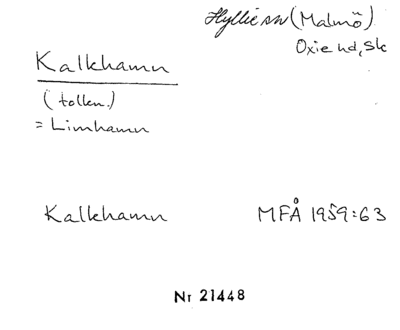 Hyllie sn (Malmö)
Oxie hd, Sk
Kalkhamn
(tolkn.)
= Limhamn
Kalkhamn MFÅ 1959:63
Nr 21448